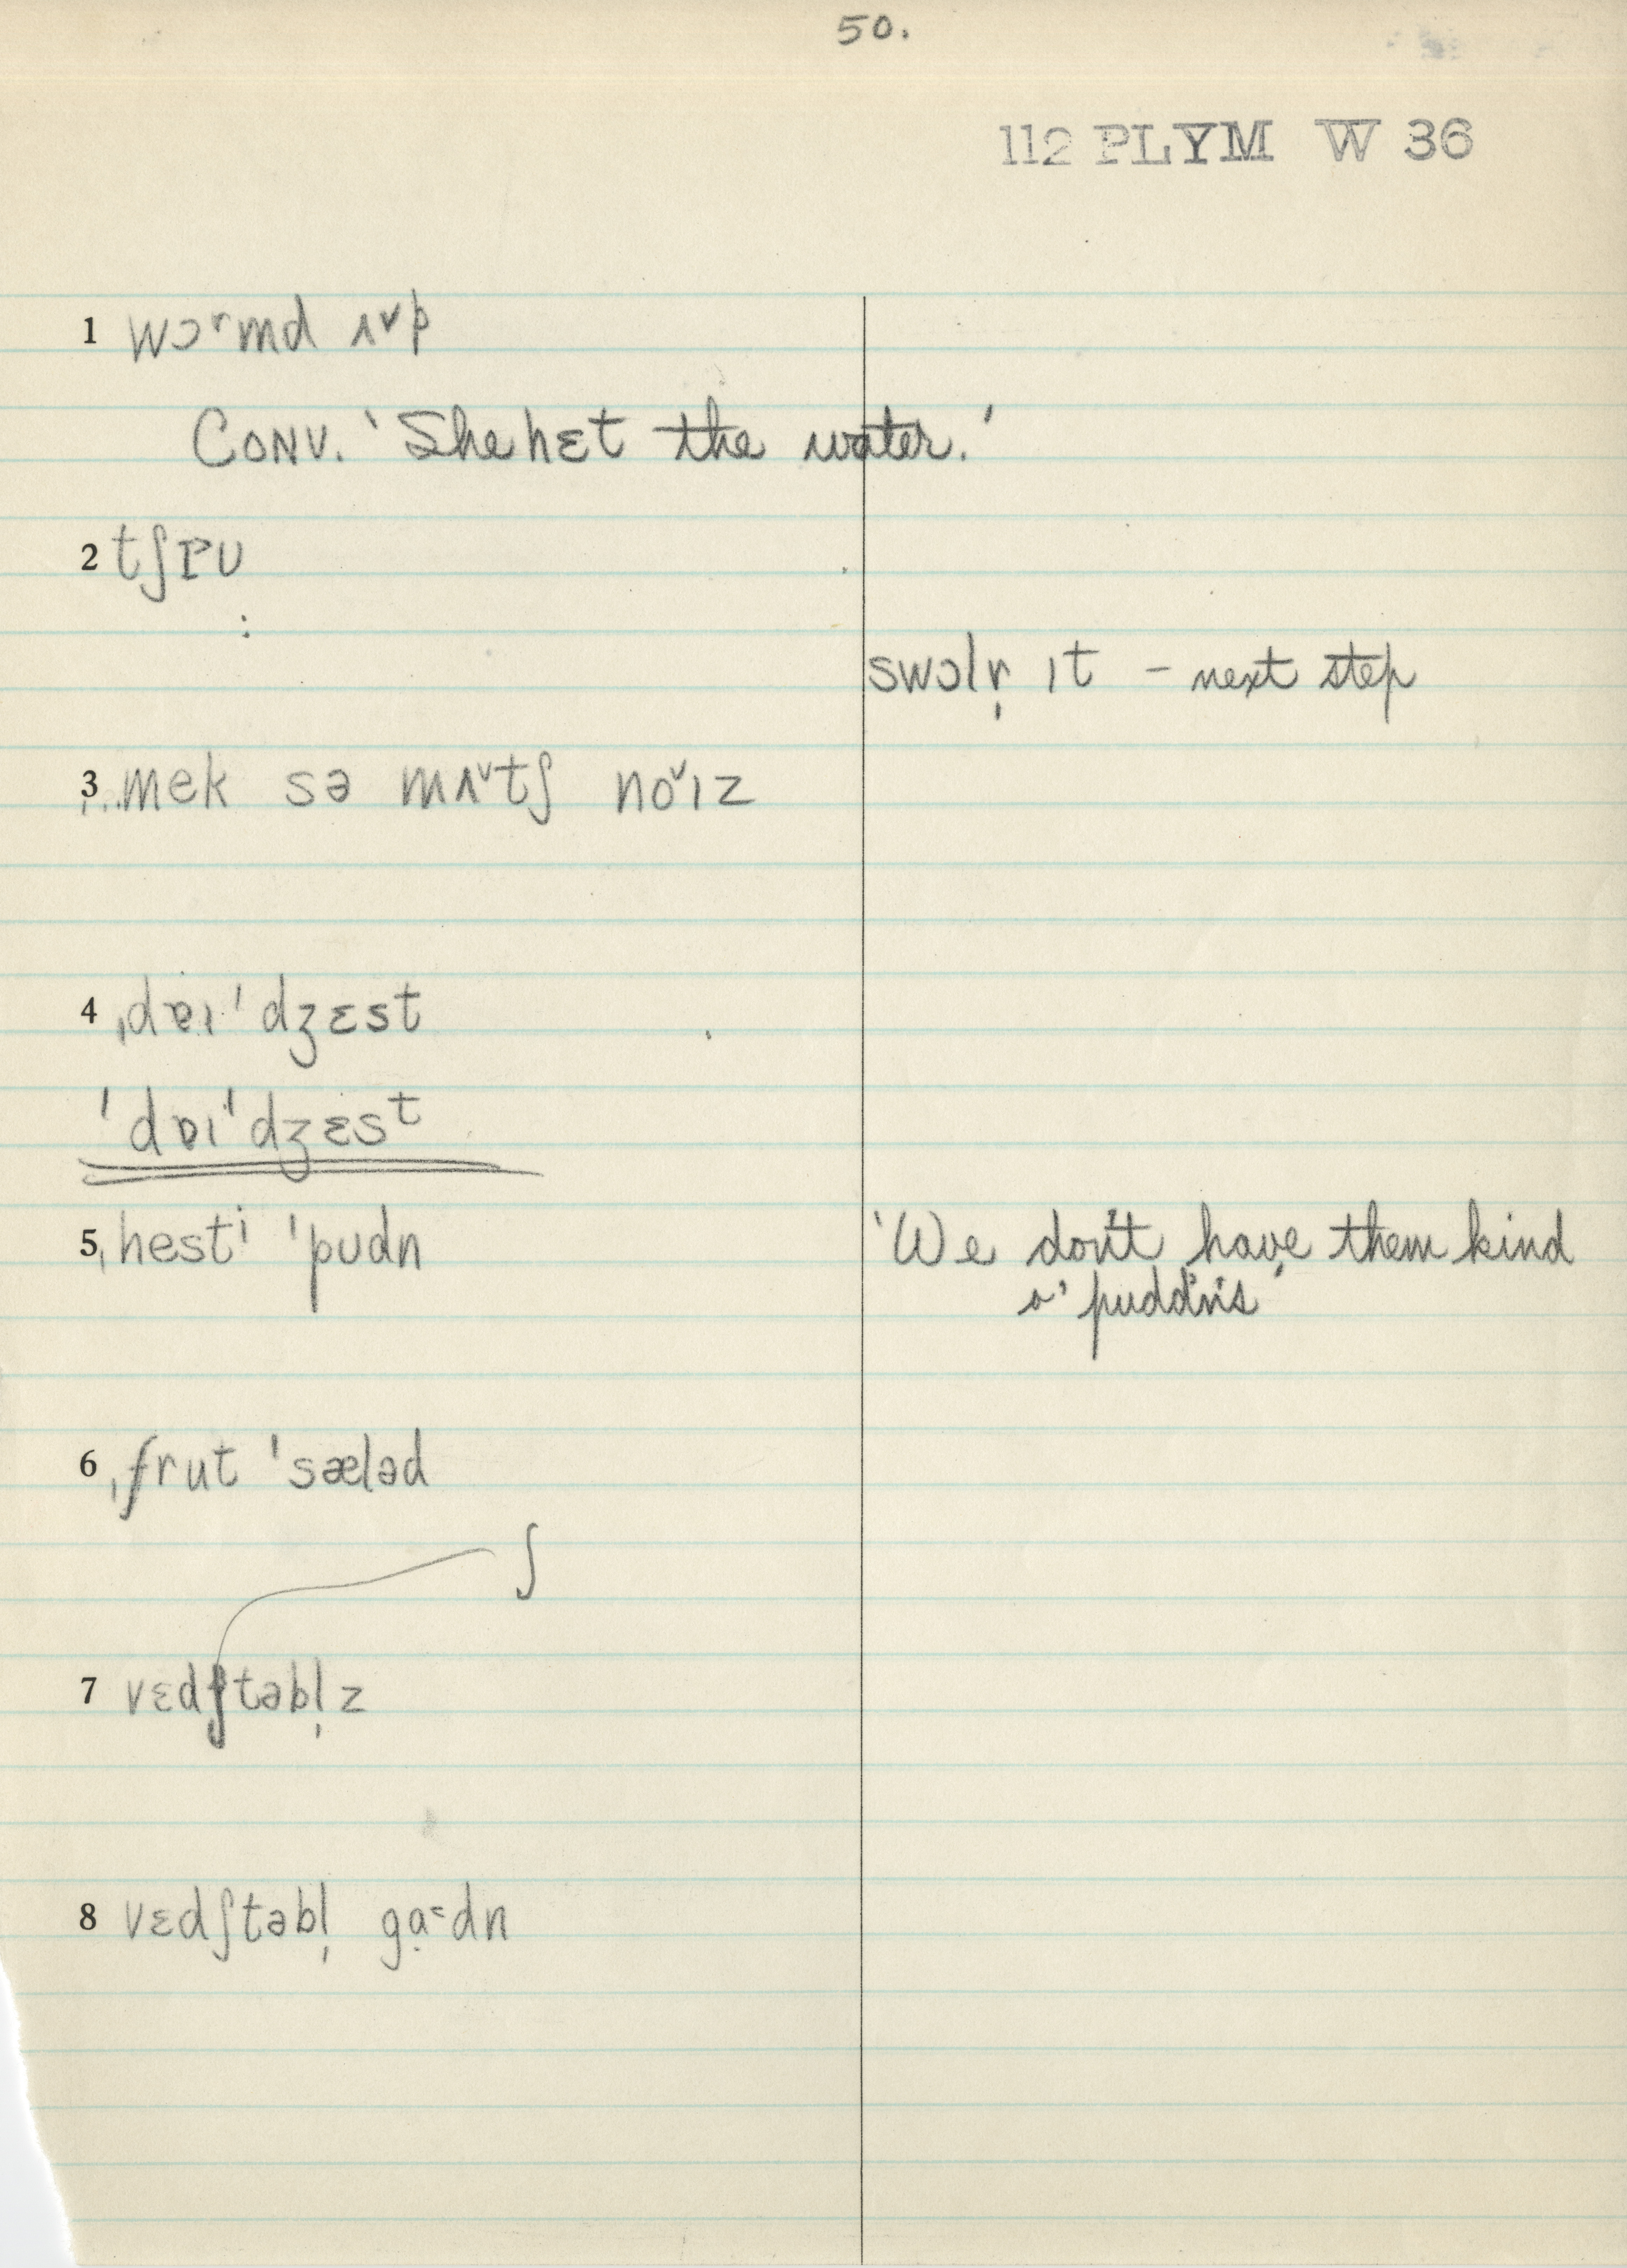 50.
112 PLYM W 36
1 wɔʳmd ʌ˅p
CONV. 'She hɛt the water.'
2
:
swɔlr̩ ɪt – next step
3 ˌ..mek sə mʌ˅tʃ no˅ɪz
4 ˌdɐɪˈdʒɛst
ˈdɒɪˈdʒɛsᵗ
5 ˌhestⁱ ˈpudn
'We don't have them kind
o' puddin's'
6 ˌfrut ˈsæləd
ʃ
7 vɛdʃtəbl̩z
8 vɛdʃtəbl̩ ga˂dn